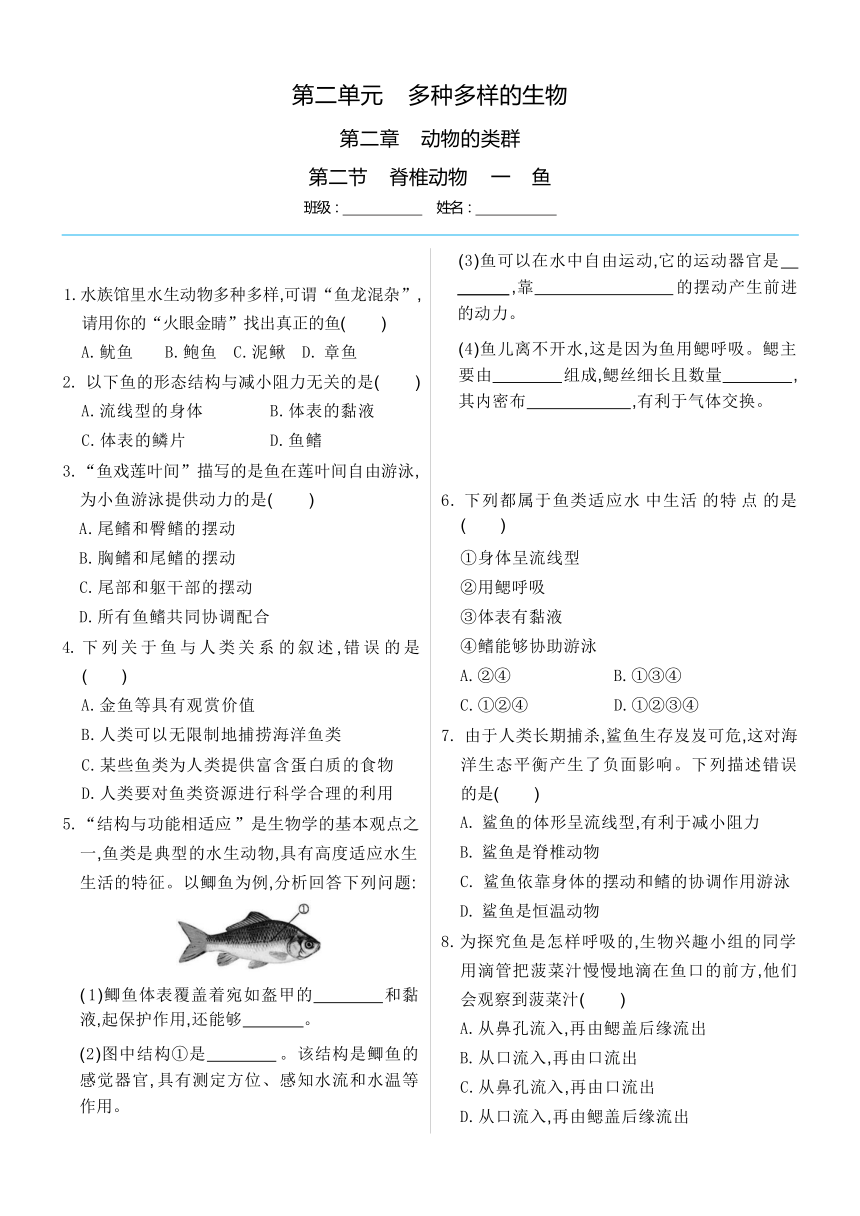 第二单元 多种多样的生物
第二章 动物的类群
第二节 脊椎动物 一 鱼
班级：__________ 姓名：__________
1.水族馆里水生动物多种多样,可谓“鱼龙混杂”,
请用你的“火眼金睛”找出真正的鱼( )
A.鱿鱼 B.鲍鱼 C.泥鳅 D. 章鱼
2. 以下鱼的形态结构与减小阻力无关的是( )
A.流线型的身体 B.体表的黏液
C.体表的鳞片 D.鱼鳍
3.“鱼戏莲叶间”描写的是鱼在莲叶间自由游泳,
为小鱼游泳提供动力的是( )
A.尾鳍和臀鳍的摆动
B.胸鳍和尾鳍的摆动
C.尾部和躯干部的摆动
D.所有鱼鳍共同协调配合
4.下列关于鱼与人类关系的叙述,错误的是
( )
A.金鱼等具有观赏价值
B.人类可以无限制地捕捞海洋鱼类
C.某些鱼类为人类提供富含蛋白质的食物
D.人类要对鱼类资源进行科学合理的利用
5.“结构与功能相适应”是生物学的基本观点之
一,鱼类是典型的水生动物,具有高度适应水生
生活的特征。以鲫鱼为例,分析回答下列问题:
①
(1)鲫鱼体表覆盖着宛如盔甲的________和黏
液,起保护作用,还能够_______。
(2)图中结构①是________。该结构是鲫鱼的
感觉器官,具有测定方位、感知水流和水温等
作用。
(3)鱼可以在水中自由运动,它的运动器官是__
______,靠________________的摆动产生前进
的动力。
(4)鱼儿离不开水,这是因为鱼用鳃呼吸。鳃主
要由________组成,鳃丝细长且数量________,
其内密布____________,有利于气体交换。
6. 下列都属于鱼类适应水 中生活 的特 点 的是
( )
①身体呈流线型
②用鳃呼吸
③体表有黏液
④鳍能够协助游泳
A.②④ B.①③④
C.①②④ D.①②③④
7. 由于人类长期捕杀,鲨鱼生存岌岌可危,这对海
洋生态平衡产生了负面影响。下列描述错误
的是( )
A. 鲨鱼的体形呈流线型,有利于减小阻力
B. 鲨鱼是脊椎动物
C. 鲨鱼依靠身体的摆动和鳍的协调作用游泳
D. 鲨鱼是恒温动物
8.为探究鱼是怎样呼吸的,生物兴趣小组的同学
用滴管把菠菜汁慢慢地滴在鱼口的前方,他们
会观察到菠菜汁( )
A.从鼻孔流入,再由鳃盖后缘流出
B.从口流入,再由口流出
C.从鼻孔流入,再由口流出
D.从口流入,再由鳃盖后缘流出